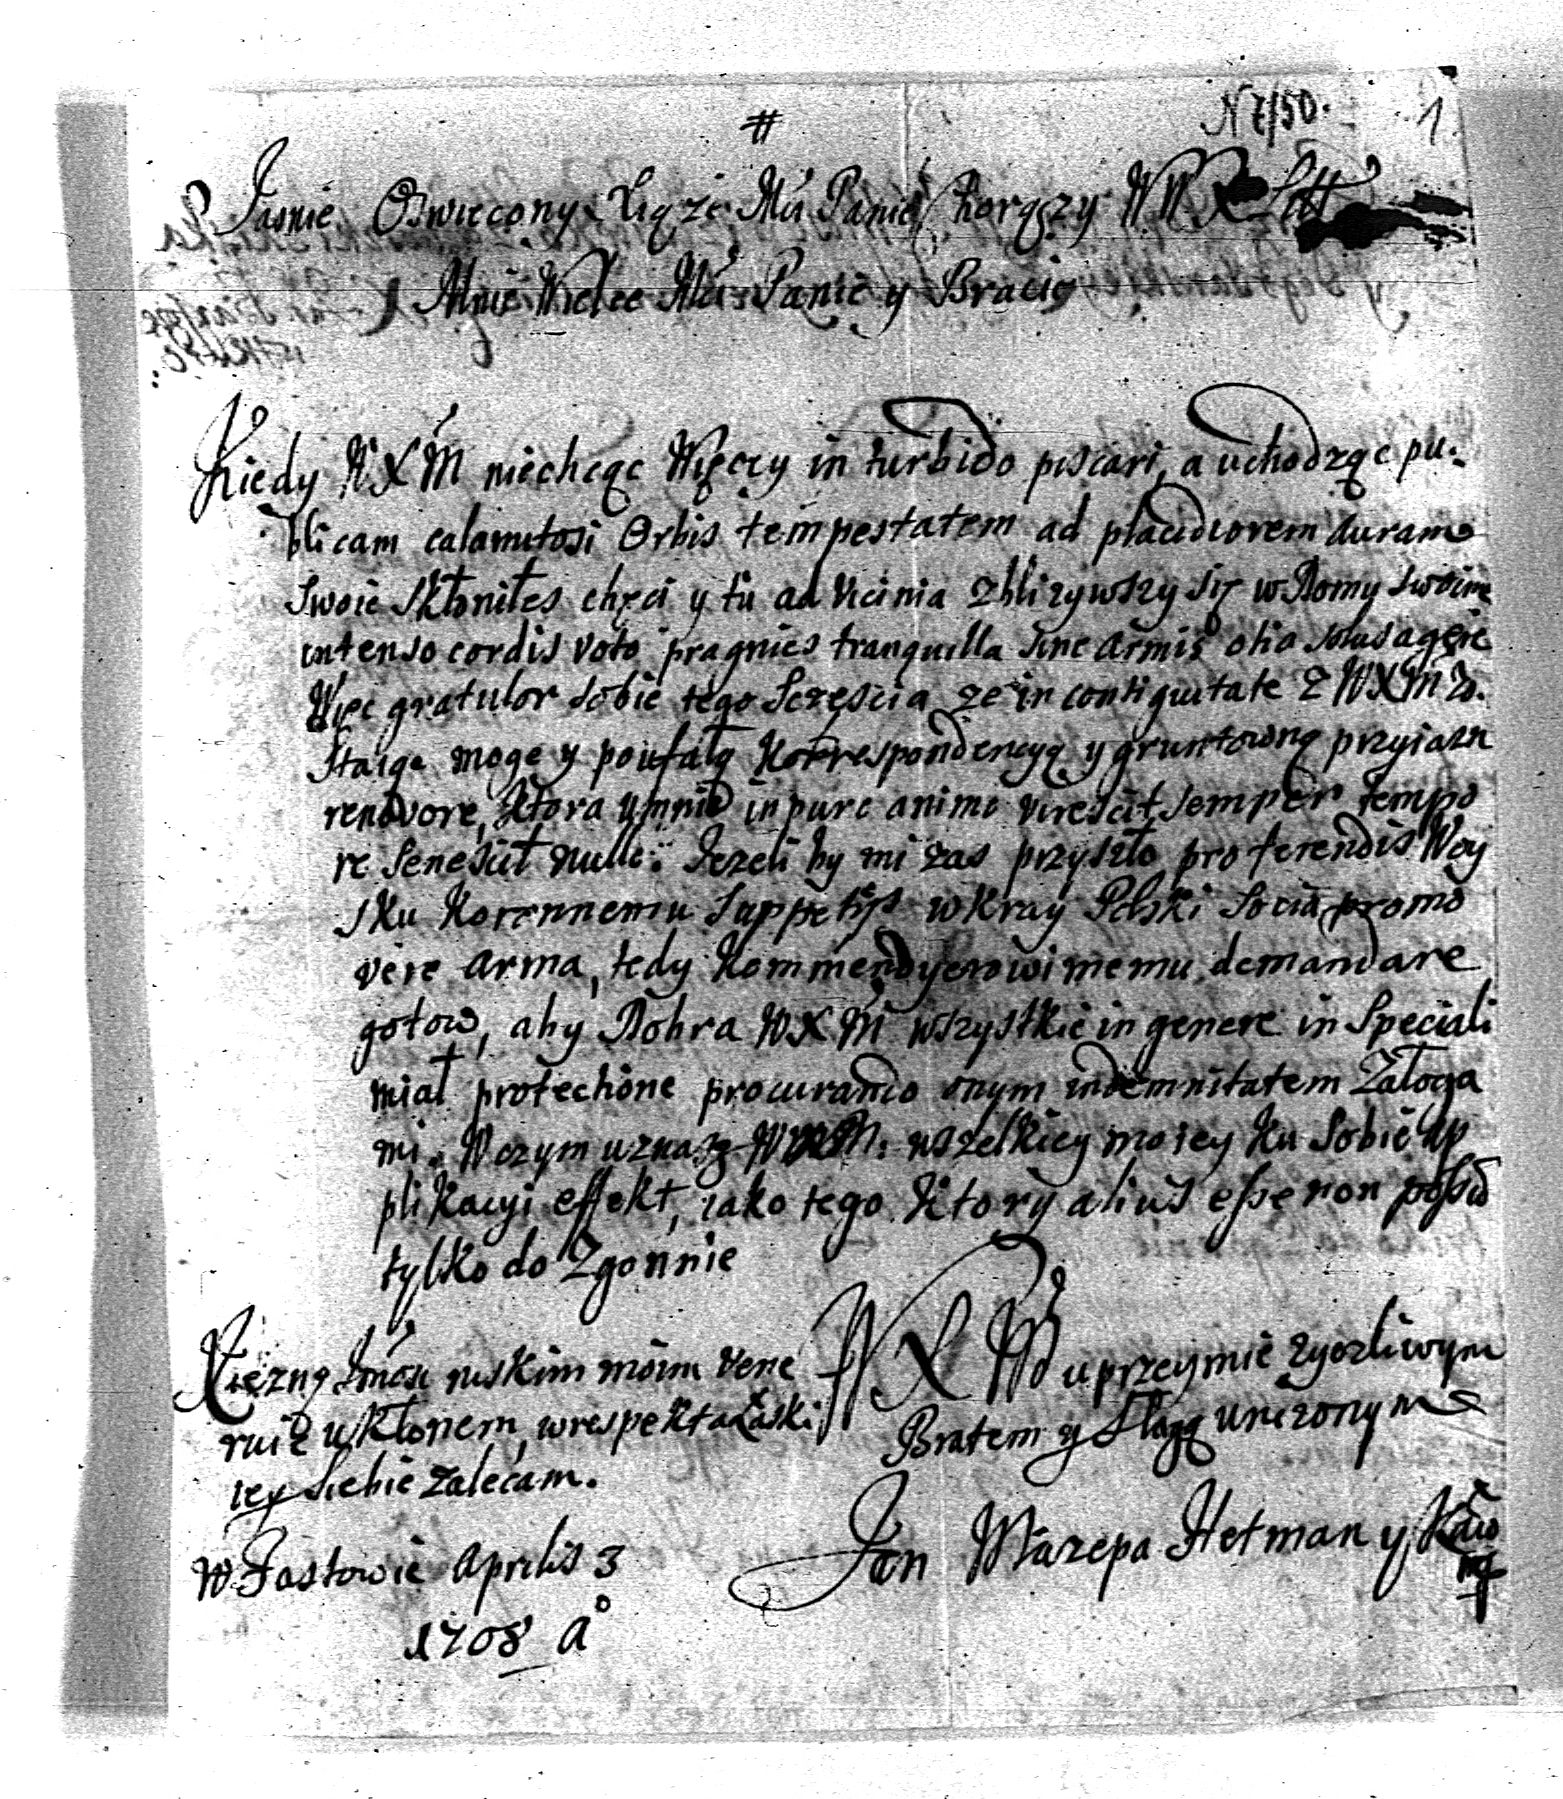 #
N 7150.
1
Jasnie Oswiecony Xiąze Mśi Panie Chorązy W W X Litt
Mnie Wielce Mśi Panie y Bracie
Kiedy W X M niechcąc Więcey in turbido piscari, a uchodząc pu-
blicam calamitosi Orbis tempestatem ad placidiorem auram
swoie skłoniłes chęci y tu ad vicinia zbliżywszy się w Domy swoim
intenso cordis voto pragnies tranquilla sine armis otia
Więc gratulor sobie tego Sczęscia ze in contiguitate z WXM
Stałą mogę y poufałą Korrespondencyą y gruntowną przyiazn
renovore, Ktora u mnie in pure animo virescit semper tempo
re senescit nullo. Jezeli by mi zas przyszło pro ferendis Woy
sku Koronnemu Suppetiis w Kray Polski Socia promo
vere arma, tedy Kommendyerowi memu demandare
gotow, aby Dobra WXM wszystkie in genere in Speciali
miał protectione procurando onym indemnitatem Załoga
mi. W czym uznasz WXM: wszelkiey moiey Ku Sobie ap
plikacyi effekt, iako tego Ktory alius esse non possum
tylko do Zgonnie
Xięzną Jmśći niskim moim vene
ruię ukłonem, w respekta Łaski
iey siebie zalecam.
W X M uprzeymie zyczliwym
Bratem y Sługą unizonym
W Fastowie Aprilis 3
1708 Aº
Jan Mazepa Hetman y Kaw
mp